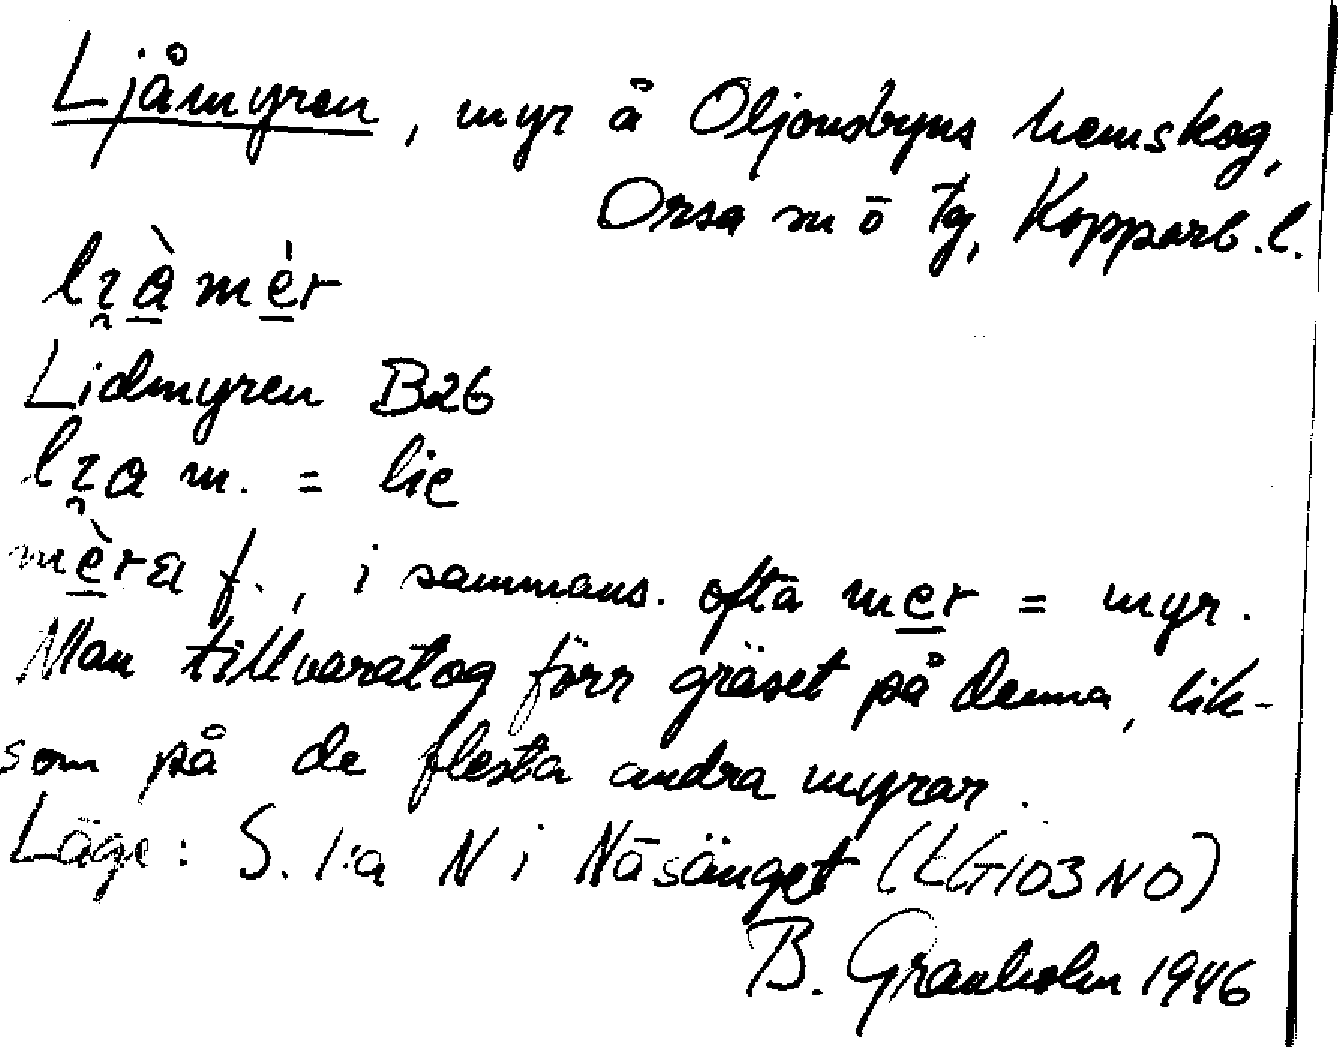 Ljåmyren, myr å Oljonsbyns hemskog,
Orsa sn o tg, Kopparb. l.
lɿ̯à̠ mè̠r
Lidmyren B26
lɿ̯a m. = lie
mè̠ra f., i sammans. ofta me̠r = myr.
Man tillvaratog förr gräset på denna, lik-
som på de flesta andra myrar.
Läge: S. l:a N i Näsänget (LG103 NO)
B. Granholm 1946